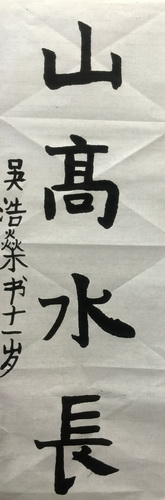 山高水長
吴浩燊书十一岁